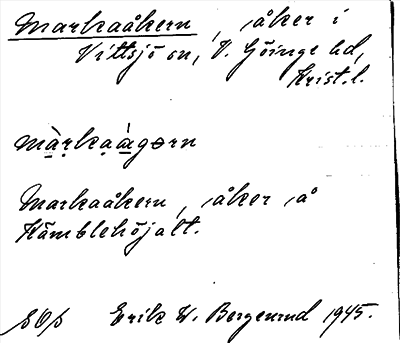 Markaåkern, åker i
Vittsjö sn, V. Göinge hd,
Krist. l.
màrkaágorn
Markaåkern, åker å
Kämblehöjalt.
Erik W. Bergenrud 1945.